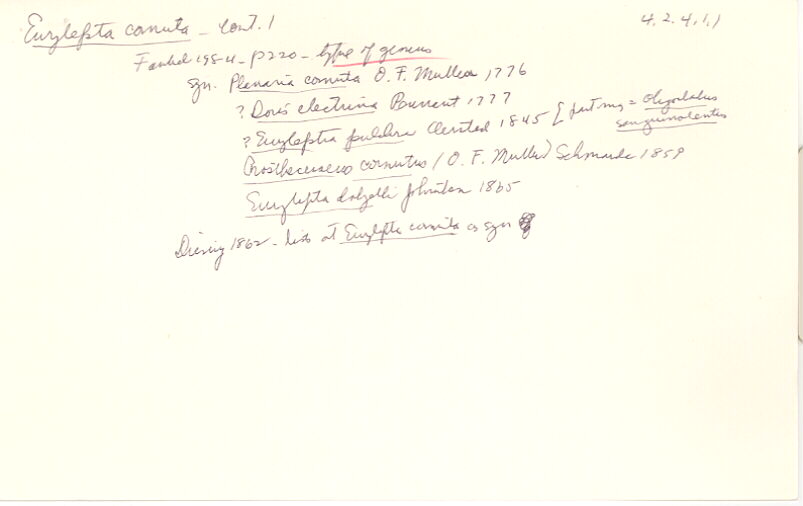 Eurylepta cornuta - Cont. 1
4.2.4.1.1
Faubel 1984 - p220 - type of genus
syn. Planaria cornuta O. F. Muller 1776
? Doris electrina Pennant 1777
? Eurylepta pulchra Oersted 1845 [ part mg = Oligocladus
sanguinolentus
Prostheceraeus cornutus (O. F. Muller) Schmarda 1859
Eurylepta dalyelli Johnston 1865
Diesing 1862 - lists at Eurylepta cornuta as syn